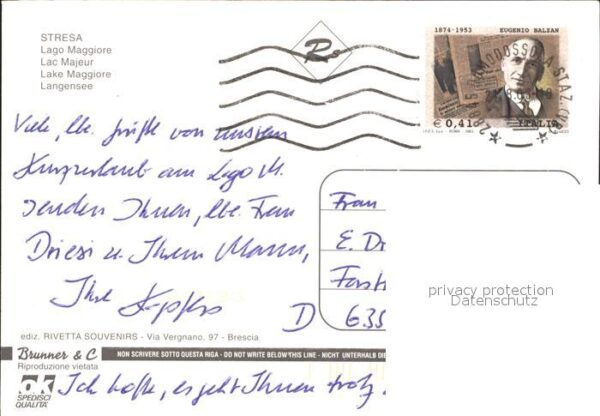 STRESA
Lago Maggiore
Lac Majeur
Lake Maggiore
Langensee
Rs
1874-1953 EUGENIO BALZAN
DOMODOSSOLA STAZ.
€ 0,41 ITALIA
Viele, lb. Grüße von unserem
Kurzurlaub am Lago M.
senden Ihnen, lbe. Frau
Driesi u. Ihrem Mann,
Ihre
D
Frau
E. Dr
Forst
635
privacy protection
Datenschutz
ediz. RIVETTA SOUVENIRS - Via Vergnano, 97 - Brescia
Brunner & C
NON SCRIVERE SOTTO QUESTA RIGA - DO NOT WRITE BELOW THIS LINE - NICHT UNTERHALB DIE
Riproduzione vietata
ok
SPEDISCI
QUALITÀ
Ich hoffe, es geht Ihnen trotz